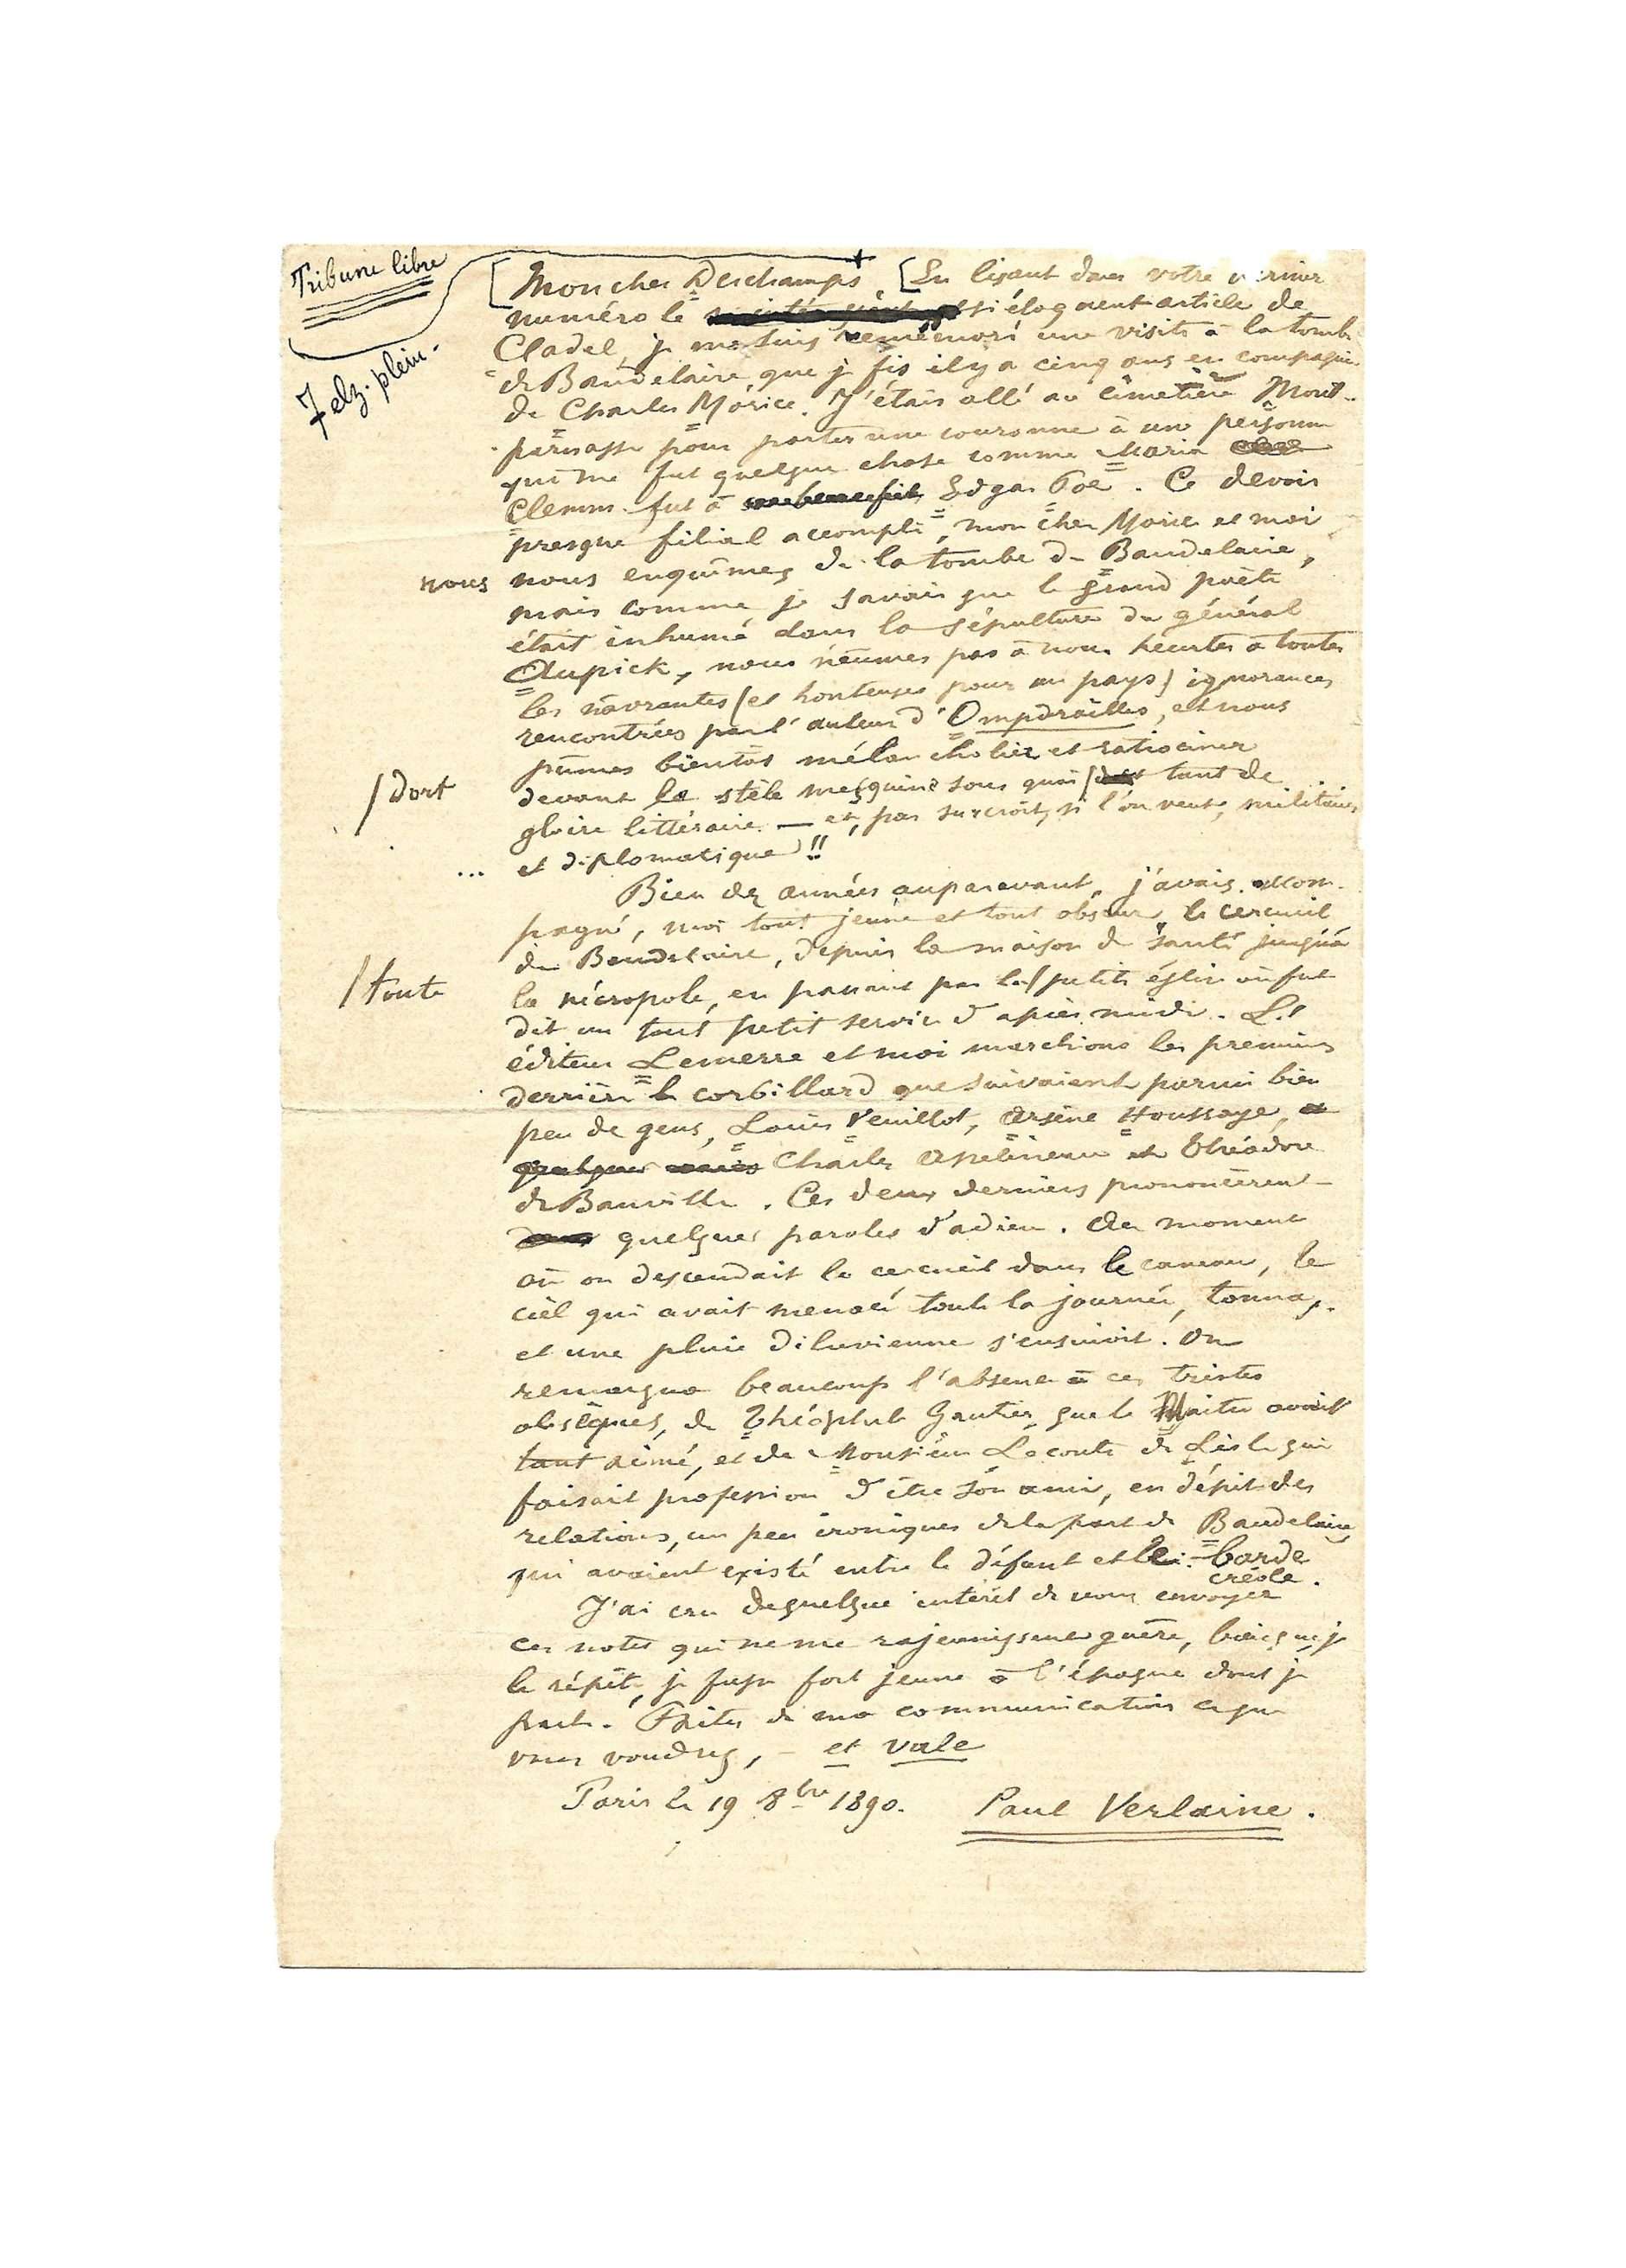 Tribune libre
7 elz. plein.
[Mon cher Deschamps, [En lisant dans votre
numéro le si éloquent article de
Cladel, je me suis remémoré une visite à la tombe
de Baudelaire, que je fis il y a cinq ans en compagnie
de Charles Morice. J'étais allé au cimetière Mont-
parnasse pour porter une couronne à une personne
qui me fut quelque chose comme Maria
Clemm fut à Edgar Poë. Ce devoir
presque filial accompli, mon cher Morice et moi
nous nous enquîmes de la tombe de Baudelaire,
mais comme je savais que le grand poète
était inhumé dans la sépulture du général
Aupick, nous n'eûmes pas à nous heurter à toutes
les navrantes (et honteuses pour un pays) ignorances
rencontrées par l'auteur d'Ompdrailles, et nous
pûmes bientôt mélancholier et ratiociner
devant la stèle mesquine sous quoi / tant de
/ dort
gloire littéraire — et, par surcroît, si l'on veut, militaire
... et diplomatique !!
Bien des années auparavant, j'avais accom-
pagné, moi tout jeune et tout obscur, le cercueil
de Baudelaire, depuis la maison de santé jusqu'à
/ toute
la nécropole, en passant par la / petite église où fut
dit un tout petit service d'après-midi. L'
éditeur Lemerre et moi marchions les premiers
derrière le corbillard que suivaient parmi bien
peu de gens, Louis Veuillot, Arsène Houssaye, et
quelques amis Charles Asselineau et Théodore
de Banville. Ces deux derniers prononcèrent
quelques paroles d'adieu. Au moment
où on descendait le cercueil dans le caveau, le
ciel qui avait menacé toute la journée, tonna,
et une pluie diluvienne s'ensuivit. On
remarqua beaucoup l'absence à ces tristes
obsèques, de Théophile Gautier que le Maître avait
tant aimé, et de Monsieur Leconte de Lisle qui
faisait profession d'être son ami, en dépit des
relations, un peu ironiques de la part de Baudelaire
qui avaient existé entre le défunt et le barde
créole.
J'ai cru de quelque intérêt de vous envoyer
ces notes qui ne me rajeunissent guère, bien que je
le répète, je fusse fort jeune à l'époque dont je
parle. Faites de ma communication ce que
vous voudrez, — et vale
Paris le 19 8bre 1890. Paul Verlaine.